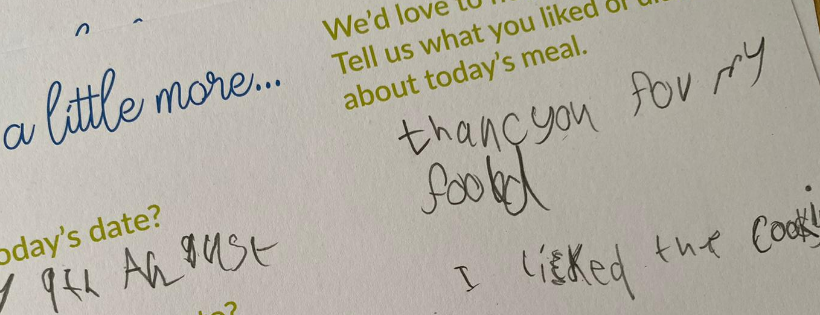 a little more...
We'd love to
Tell us what you liked or
about today's meal.
thancyou for my
foobd
oday's date?
9th August
I licked the cooki